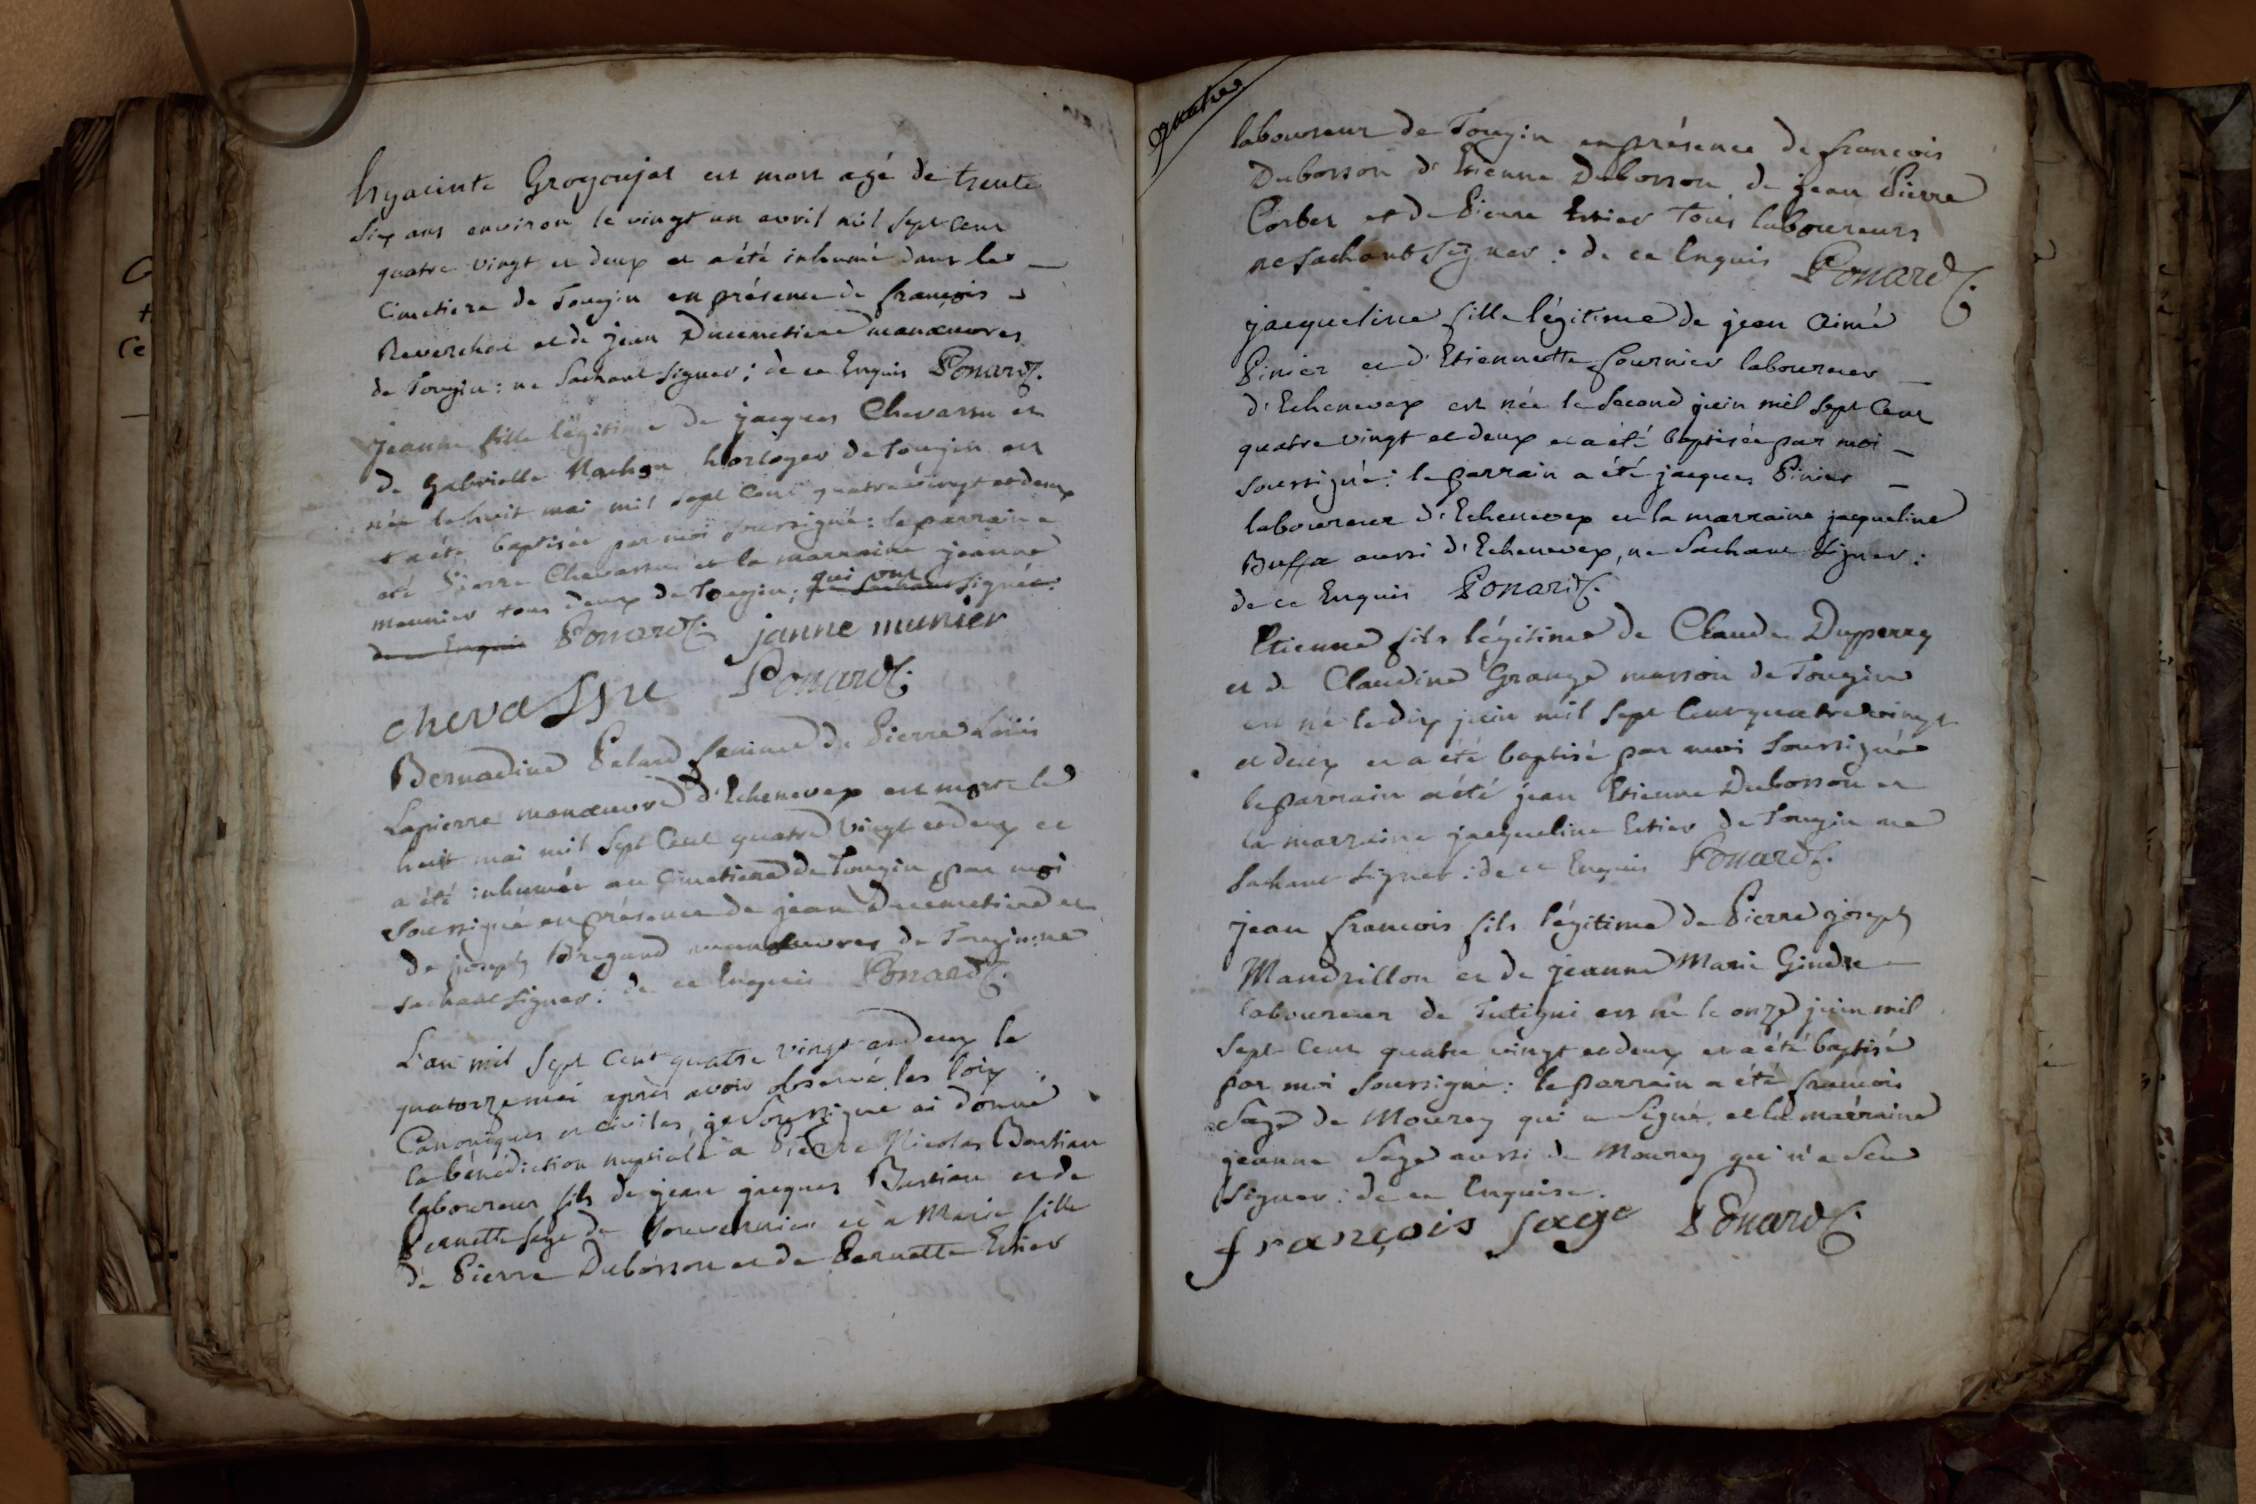 hyacinte Grogonjat est mort agé de trente
six ans environ le vingt un avril mil sept cent
quatre vingt et deux et a été inhumé dans le
Cimetiere de Tougin en présence de françois
Reverchon et de jean Ducimetiere manœuvres
de Tougin : ne sachant signer ; de ce Enquis Ponard C.
jeanne fille légitime de jacques Chevassu et
de gabrielle horloger de tougin est
née le huit mai mil sept cent quatre vingt et deux
et a été baptisée par moi soussigné : le parrain a
été pierre Chevassu et la marraine jeanne
meunier tous deux de Tougin ; qui ont ne sachant signée :
de ce Enquis Ponard C. janne munier
chevassue Ponard C.
Bernardine femme de Pierre Loüis
Lapierre manœuvre d'Echenevex est morte le
huit mai mil sept cent quatre vingt et deux et
a été inhumée au Cimetiere de Tougin par moi
soussigné en présence de jean Ducimetiere et
de joseph Bregand manœuvres de Tougin : ne
sachant signer : de ce Enquis Ponard C.
L'an mil sept cent quatre vingt et deux le
quatorze mai après avoir observé les loix
Canoniques et civiles, je soussigné ai donné
la bénédiction nuptiale a Pierre Nicolas Bastian
laboureur fils de jean jacques Bastian et de
Pernette sage de et a Marie fille
de Pierre Dubosson et de Pernette Estier
quatre
laboureur de Tougin en présence de françois
Dubosson d'Etienne Dubosson, de jean Pierre
Corbet et de Pierre Estier Tous laboureurs
ne sachant signer : de ce Enquis Ponard C.
jacqueline fille légitime de jean Aimé
Pinier et d'Etiennette fournier laboureur
d'Echenevex est née le second juin mil sept cent
quatre vingt et deux et a été baptisée par moi
soussigné : le parrain a été jacques Pinier
laboureur d'Echenevex et la marraine jacqueline
Buffa aussi d'Echenevex, ne sachant signer :
de ce Enquis Ponard C.
Etienne fils légitime de Claude Dupperrey
et de Claudine Grange masson de Tougin
est né le dix juin mil sept cent quatre vingt
et deux et a été baptisé par moi soussigné
le parrain a été jean Etienne Dubosson et
la marraine jacqueline Estier de Tougin ne
sachant signer : de ce Enquis Ponard C.
jean françois fils légitime de Pierre joseph
Mandrillon et de jeanne Marie Gindre
laboureur de Tutigni est né le onze juin mil
sept cent quatre vingt et deux et a été baptisé
par moi soussigné : le parrain a été françois
Sage de Mourey qui a signé, et la marraine
jeanne Sage aussi de Mourey qui n'a sçu
signer : de ce Enquise.
françois sage Ponard C.